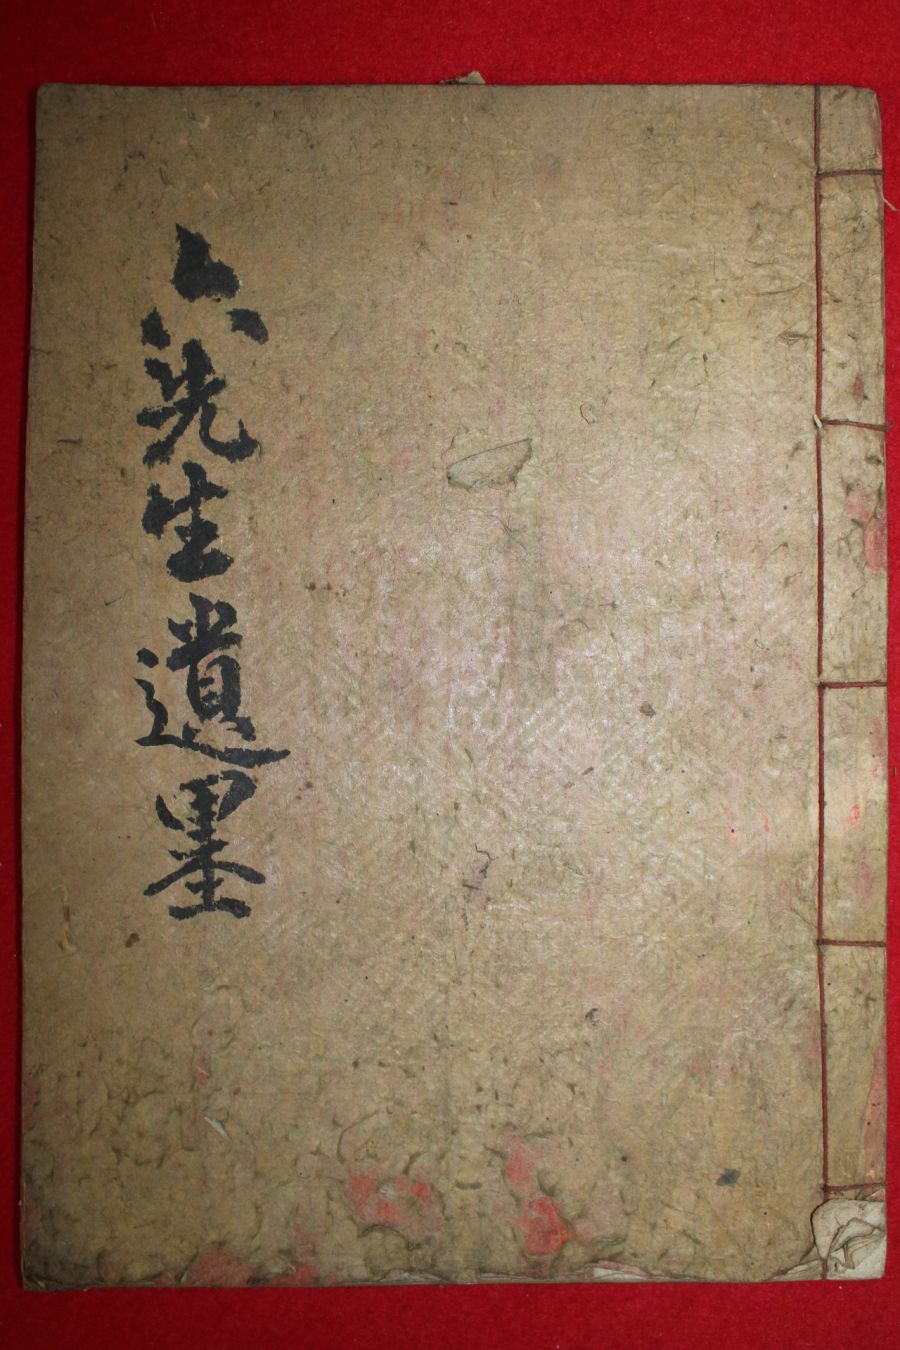 六先生遺墨